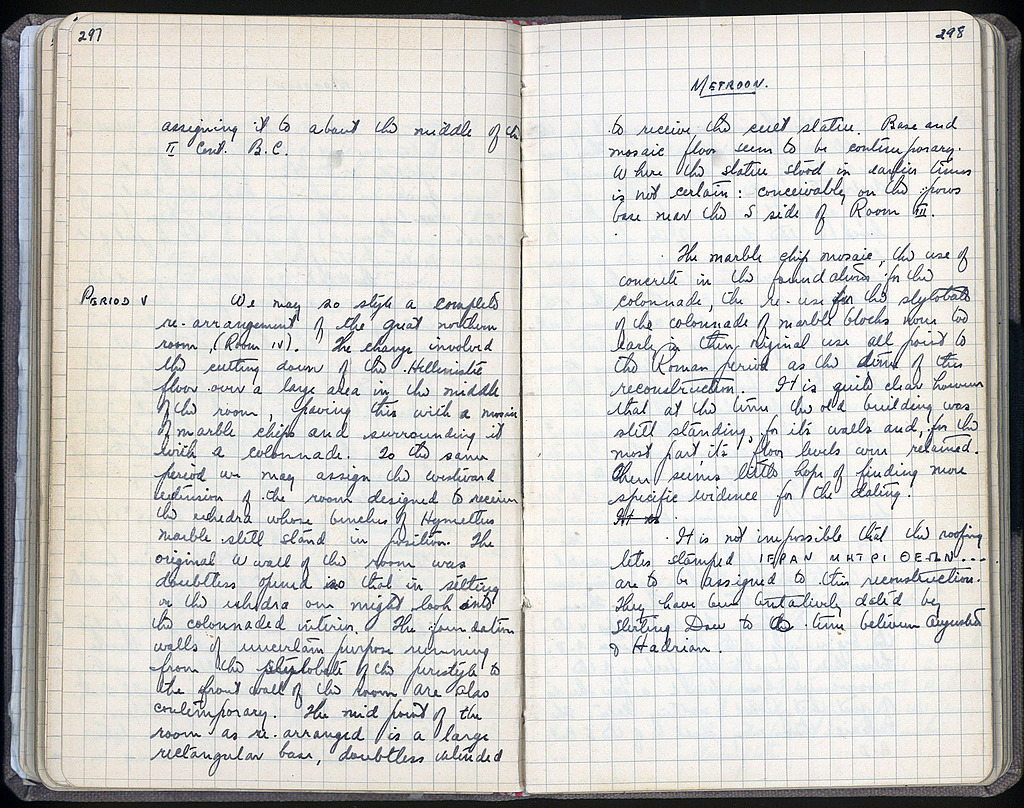 297
assigning it to about the middle of the
II Cent. B.C.
PERIOD V
We may so style a complete
re-arrangement of the great northern
room, (Room IV). The change involved
the cutting down of the Hellenistic
floor over a large area in the middle
of the room, paving this with a mosaic
of marble chips and surrounding it
with a colonnade. To the same
period we may assign the westward
extension of the room designed to receive
the exhedra whose benches of Hymettus
marble still stand in position. The
original W wall of the room was
doubtless opened so that in sitting
on the exhedra one might look into
the colonnaded interior. The foundation
walls of uncertain purpose running
from the stylobate of the peristyle to
the front wall of the room are also
contemporary. The mid point of the
room as re-arranged is a large
rectangular base, doubtless intended
298
METROON.
to receive the cult statue. Base and
mosaic floor seem to be contemporary.
Where the statue stood in earlier times
is not certain: conceivably on the poros
base near the S side of Room III.
The marble chip mosaic, the use of
concrete in the foundations for the
colonnade, the re-use for the stylobate
of the colonnade of marble blocks none too
early in their original use all point to
the Roman period as the time of this
reconstruction. It is quite clear however
that at the time the old building was
still standing, for its walls and, for the
most part, its floor levels were retained.
There seems little hope of finding more
specific evidence for the dating.
It is
It is not impossible that the roofing
tiles stamped ΙΕΡΑΝ ΜΗΤΡΙ ΘΕΩΝ...
are to be assigned to this reconstruction.
They have been tentatively dated by
Sterling Dow to the time between Augustus
& Hadrian.